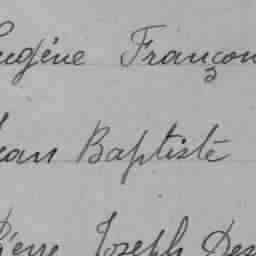 Eugéne Françon
Jean Baptiste
Piere Joseph Des